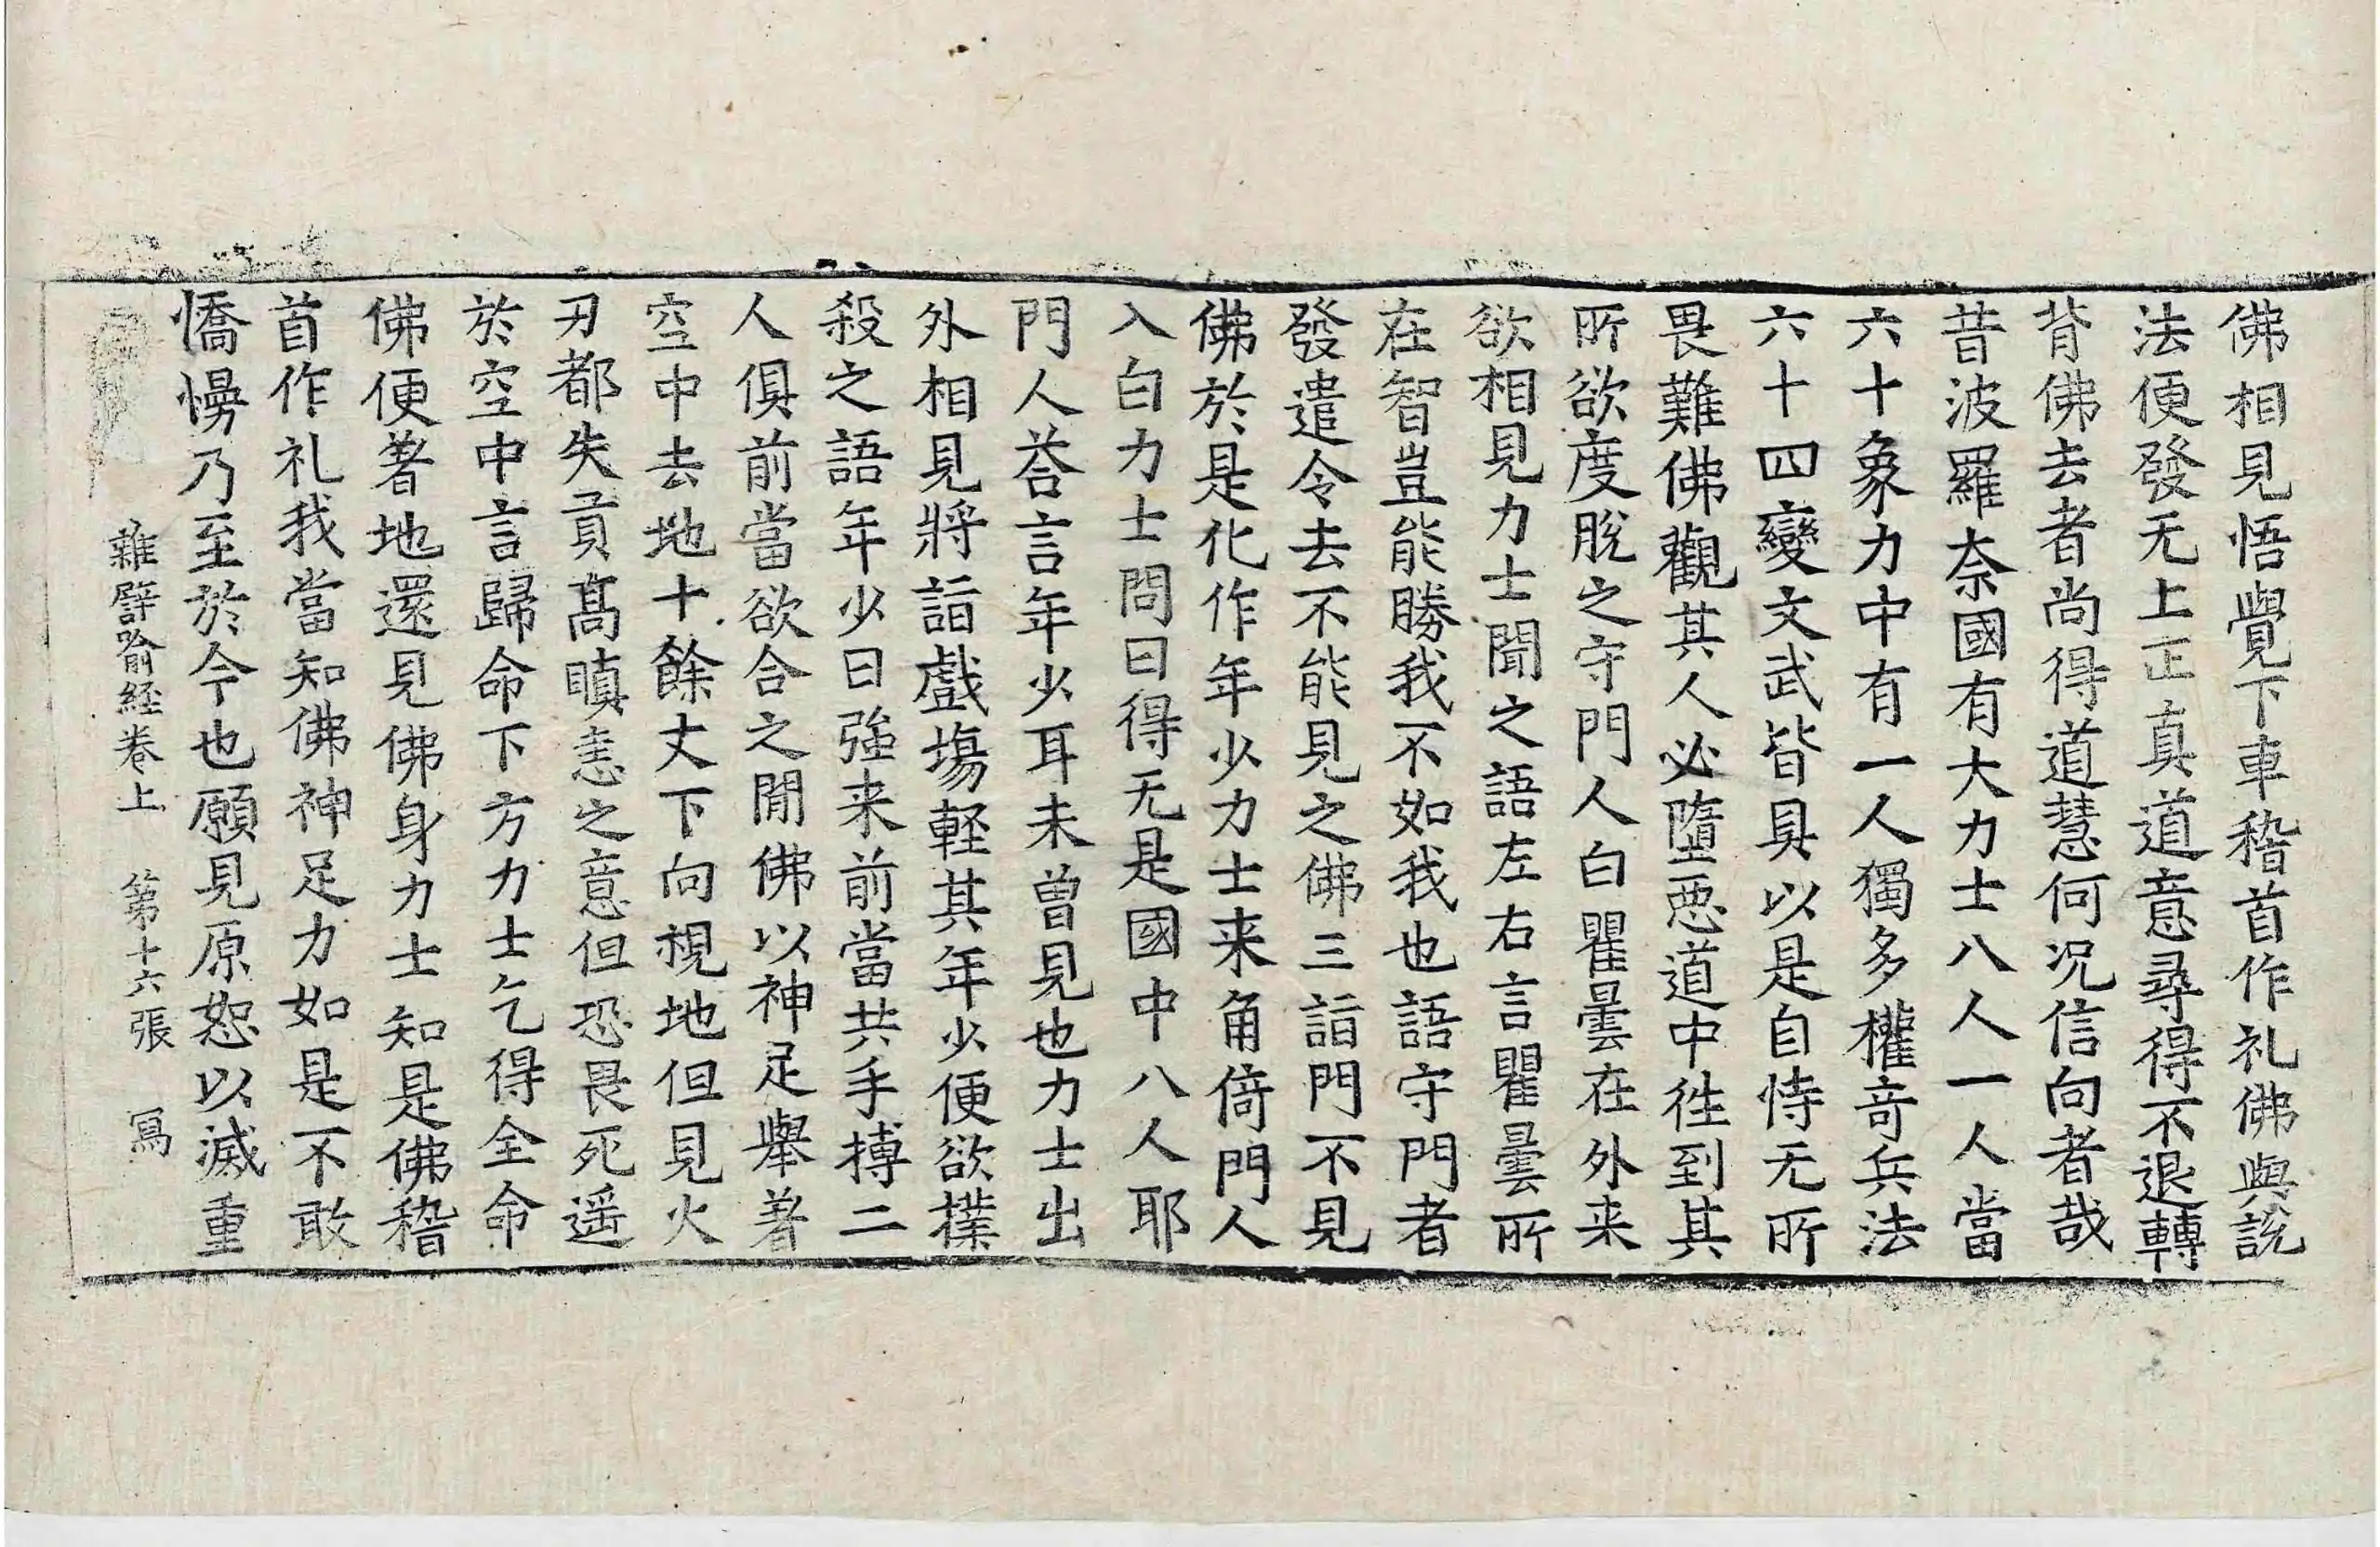 佛相見悟覺下車稽首作礼佛與說
法便發无上正真道意尋得不退轉
背佛去者尚得道慧何況信向者哉
昔波羅奈國有大力士八人一人當
六十象力中有一人獨多權奇兵法
六十四變文武皆具以是自恃无所
畏難佛觀其人必墮惡道中徃到其
所欲度脫之守門人白瞿曇在外来
欲相見力士聞之語左右言瞿曇所
在智豈能勝我不如我也語守門者
發遣令去不能見之佛三詣門不見
佛於是化作年少力士来角倚門人
入白力士問曰得无是國中八人耶
門人荅言年少耳未曾見也力士出
外相見將詣戲場輕其年少便欲撲
殺之語年少曰強来前當共手搏二
人俱前當欲合之閒佛以神足舉著
空中去地十餘丈下向視地但見火
刃都失貢高瞋恚之意但恐畏死遥
於空中言歸命下方力士乞得全命
佛便著地還見佛身力士知是佛稽
首作礼我當知佛神足力如是不敢
憍慢乃至於今也願見原恕以滅重
雜譬喻経卷上 第十六張 寫